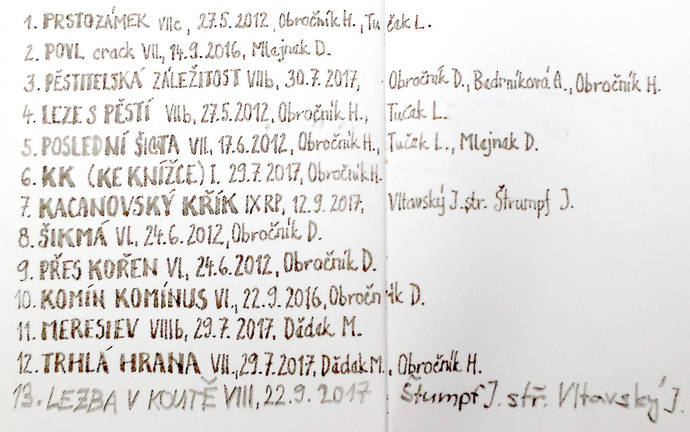 1. PRSTOZÁMEK VIIc, 27.5.2012, Obročník H., Tuček L.
2. POVL crack VII, 14.9.2016, Mlejnek D.
3. PĚSTITELSKÁ ZÁLEŽITOST VIIb, 30.7.2017, Obročník D., Bedrníková A., Obročník H.
4. LEZE S PĚSTÍ VIIb, 27.5.2012, Obročník H., Tuček L.
5. POSLEDNÍ ŠICHTA VII, 17.6.2012, Obročník H., Tuček L., Mlejnek D.
6. KK (KE KNÍŽCE) I. 29.7.2017, Obročník H.
7. KACANOVSKÝ KŘÍK IX RP, 12.9.2017, Vltavský J. stř. Štrumpf J.
8. ŠIKMÁ VI, 24.6.2012, Obročník D.
9. PŘES KOŘEN VI, 24.6.2012, Obročník D.
10. KOMÍN KOMÍNUS VI, 22.9.2016, Obročník D.
11. MERESJEV VIIIb, 29.7.2017, Dádek M.
12. TRHLÁ HRANA VII., 29.7.2017, Dádek M., Obročník H.
13. LEZBA V KOUTĚ VIII, 22.9.2017 Štumpf J. stř. Vltavský J.